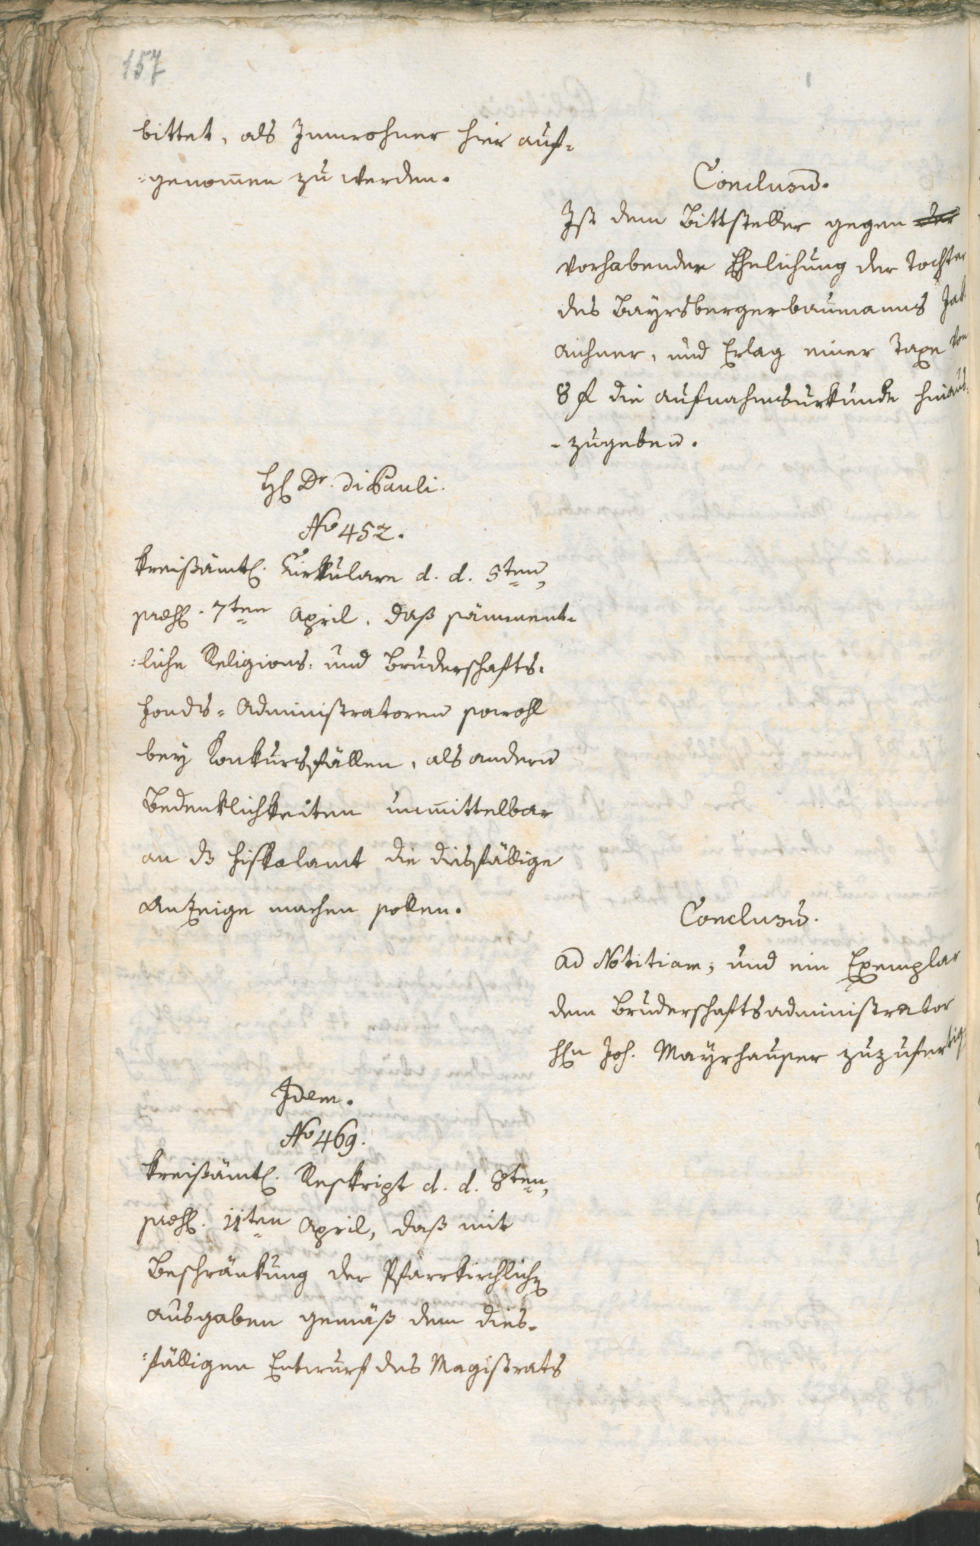 157
bittet, als Innwohner hier auf-
-genom̅en zu werden.
Conclusum̅.
Ist dem Bittsteller gegen der
vorhabender Ehelichung der Tochter
des Bayrsbergerbaumanns Jak
Aichner, und Erlag einer Taxe von
8 f die Aufnahmsurkunde hinaus-
-zugeben.
H. Dr. di Pauli.
No 452.
Kreisämtl. Cirkulare d. d. 5ten,
præs. 7ten April, daß sämment-
-liche Religions- und Bruderschafts-
Fonds-Administratoren sowohl
bey Konkursfällen, als andern
Bedenklichkeiten unmittelbar
an ds Fiskalamt die diesfällige
Anzeige machen sollen.
Conclusum̅.
ad Notitiam, und ein Exemplar
dem Bruderschaftsadministrator
Hn Joh. Mayrhauser zuzufertig
Idem.
No 469.
Kreisämtl. Reskript d. d. 8ten,
præs. 11ten April, daß mit
Beschränkung der Pfarrkirchlichen
Ausgaben gemäß dem dies-
-fälligen Entwurf des Magistrats